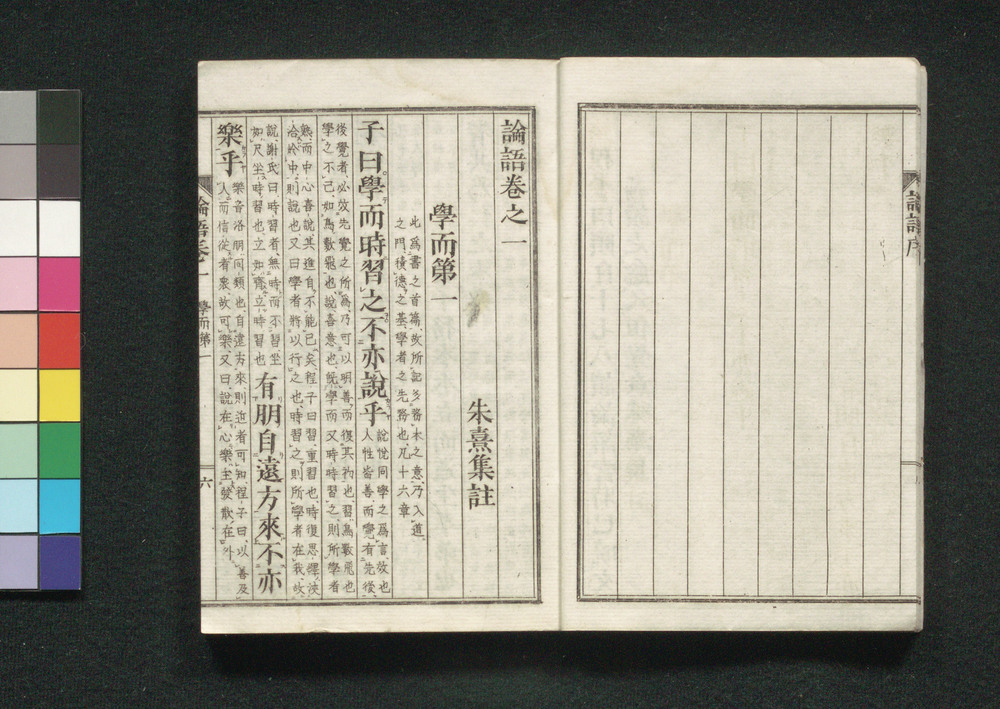 論語序
論語卷之一
朱熹集註
學而第一
此爲書之首篇故所記多務本之意乃入道
之門積德之基學者之先務也凡十六章
子曰學而時習之不亦說乎
說悅同學之爲言效也
人性皆善而覺有先後
後覺者必效先覺之所爲乃可以明善而復其初也習鳥數飛也
學之不已如鳥數飛也說喜意也旣學而又時時習之則所學者
熟而中心喜說其進自不能已矣程子曰習重習也時復思繹浹
洽於中則說也又曰學者將以行之也時習之則所學者在我故
說謝氏曰時習者無時而不習坐
如尸坐時習也立如齊立時習也
有朋自遠方來不亦
樂乎
樂音洛朋同類也自遠方來則近者可知程子曰以善及
人而信從者衆故可樂又曰說在心樂主發散在外
論語卷一 學而第一 六